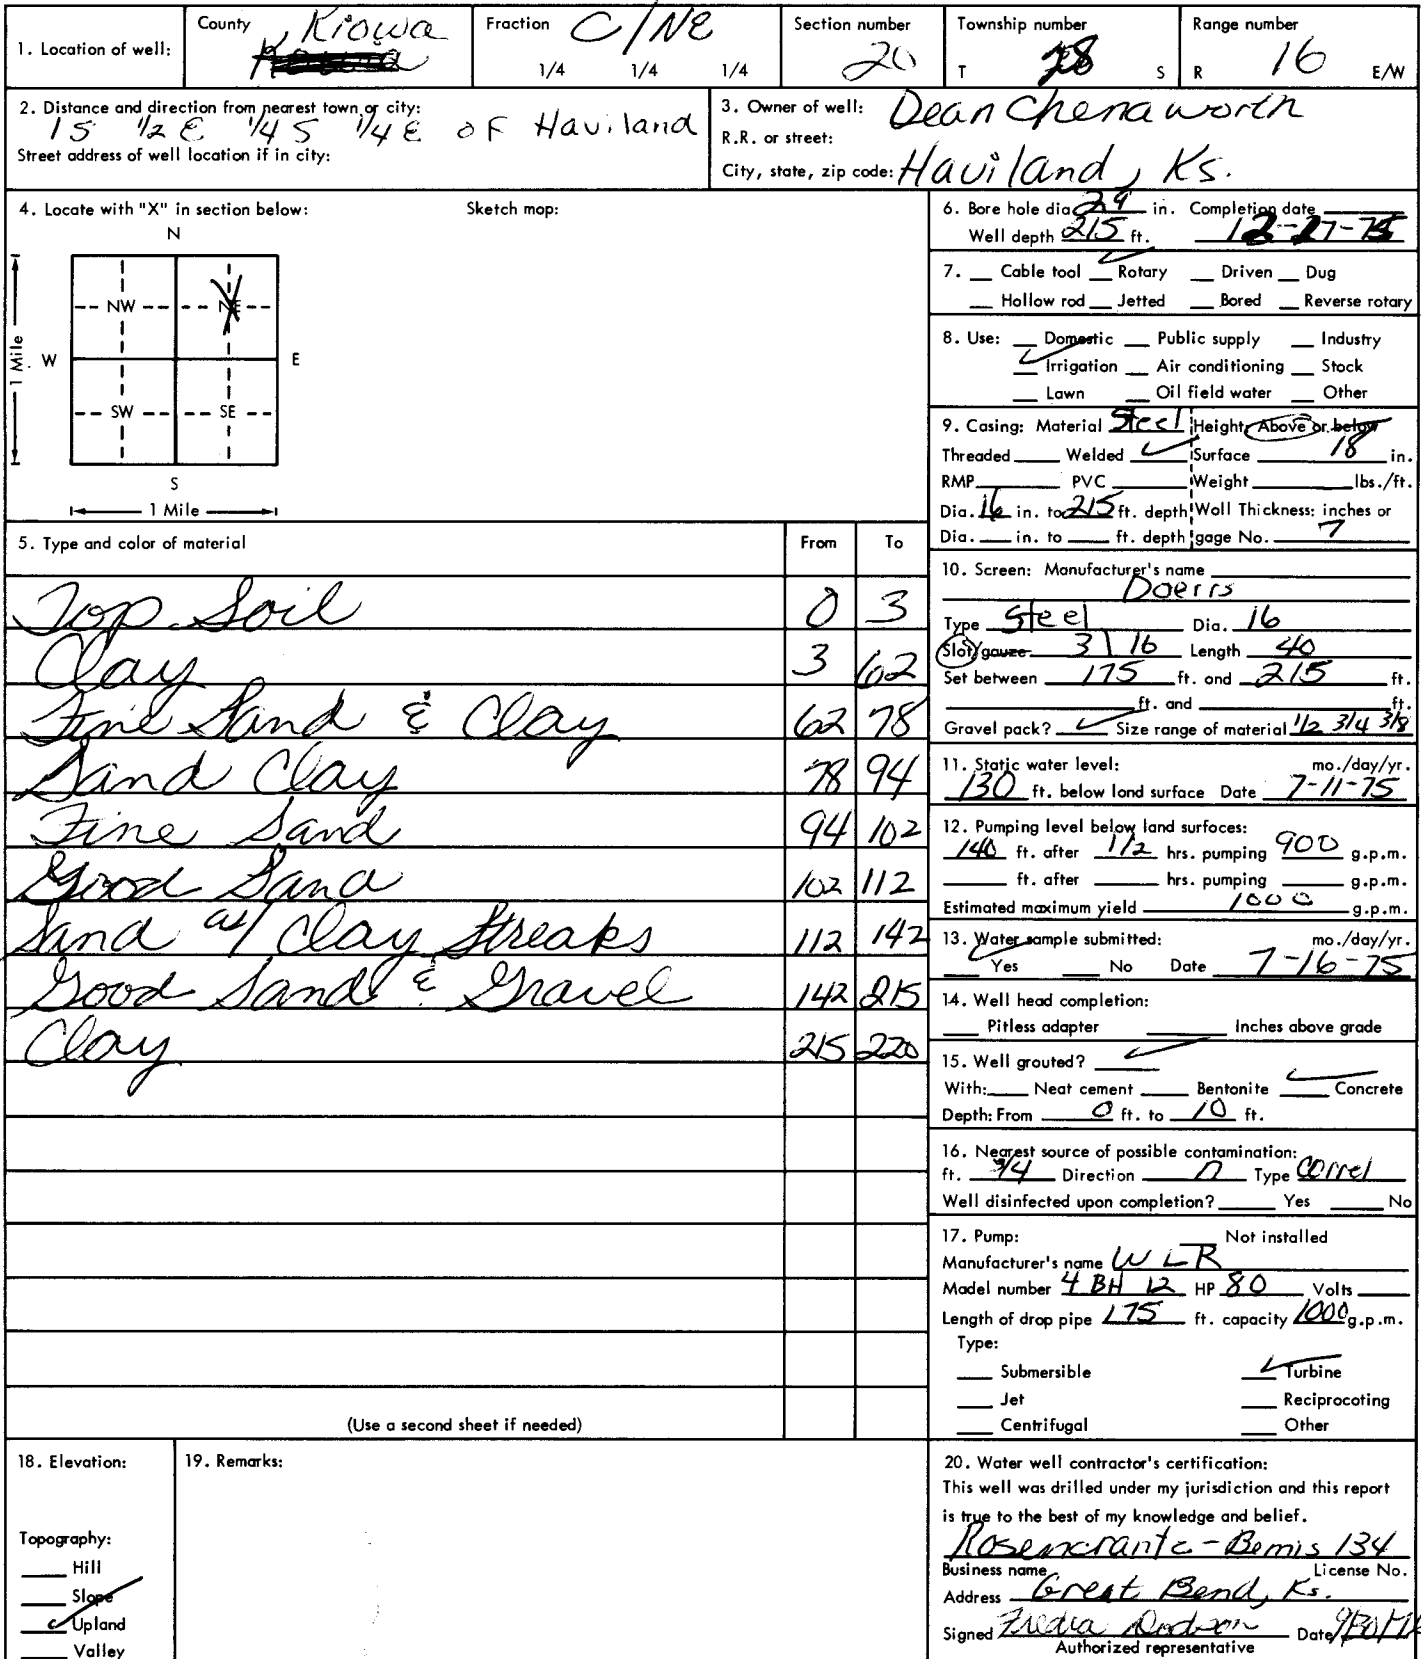 1. Location of well: County Kiowa Fraction C/NE 1/4 1/4 1/4 Section number 20 Township number T 28 S Range number R 16 E/W
2. Distance and direction from nearest town or city:
1S 1/2 E 1/4 S 1/4 E of Haviland
Street address of well location if in city:
3. Owner of well: Dean Chenaworth
R.R. or street:
City, state, zip code: Haviland, Ks.
4. Locate with "X" in section below: Sketch mop:
N
NW NE
W E
SW SE
S
1 Mile
1 Mile
5. Type and color of material From To
Top Soil 0 3
Clay 3 62
Fine Sand & Clay 62 78
Sand Clay 78 94
Fine Sand 94 102
Good Sand 102 112
Sand w/ Clay Streaks 112 142
Good Sand & Gravel 142 215
Clay 215 220
(Use a second sheet if needed)
6. Bore hole dia. in. Completion date
Well depth 215 ft. 12-27-75
7. Cable tool Rotary Driven Dug
Hollow rod Jetted Bored Reverse rotary
8. Use: Domestic Public supply Industry
Irrigation Air conditioning Stock
Lawn Oil field water Other
9. Casing: Material Steel Height: Above or below
Threaded Welded Surface 18 in.
RMP PVC Weight lbs./ft.
Dia. 16 in. to 215 ft. depth Woll Thickness: inches or
Dia. in. to ft. depth gage No. 7
10. Screen: Manufacturer's name
Doerrs
Type Steel Dia. 16
Slot/gauze 3\16 Length 40
Set between 175 ft. and 215 ft.
ft. and ft.
Gravel pack? Size range of material 1/2 3/4 3/8
11. Static water level: mo./day/yr.
130 ft. below lond surface Date 7-11-75
12. Pumping level below land surfoces:
140 ft. after 1 1/2 hrs. pumping 900 g.p.m.
ft. after hrs. pumping g.p.m.
Estimated maximum yield 1000 g.p.m.
13. Water sample submitted: mo./day/yr.
Yes No Date 7-16-75
14. Well head completion:
Pitless adapter Inches above grade
15. Well grouted?
With: Neat cement Bentonite Concrete
Depth: From 0 ft. to 10 ft.
16. Nearest source of possible contamination:
ft. 3/4 Direction n Type Correl
Well disinfected upon completion? Yes No
17. Pump: Not installed
Manufacturer's name WLR
Madel number 4 BH 12 HP 80 Volts
Length of drop pipe 175 ft. capacity 1000 g.p.m.
Type:
Submersible Turbine
Jet Reciprocoting
Centrifugal Other
18. Elevation:
Topography:
Hill
Slope
Upland
Valley
19. Remarks:
20. Water well contractor's certification:
This well was drilled under my jurisdiction and this report
is true to the best of my knowledge and belief.
Rosencrantz-Bemis 134
Business name License No.
Address Great Bend, Ks.
Signed Fredia Dodson Date
Authorized representative